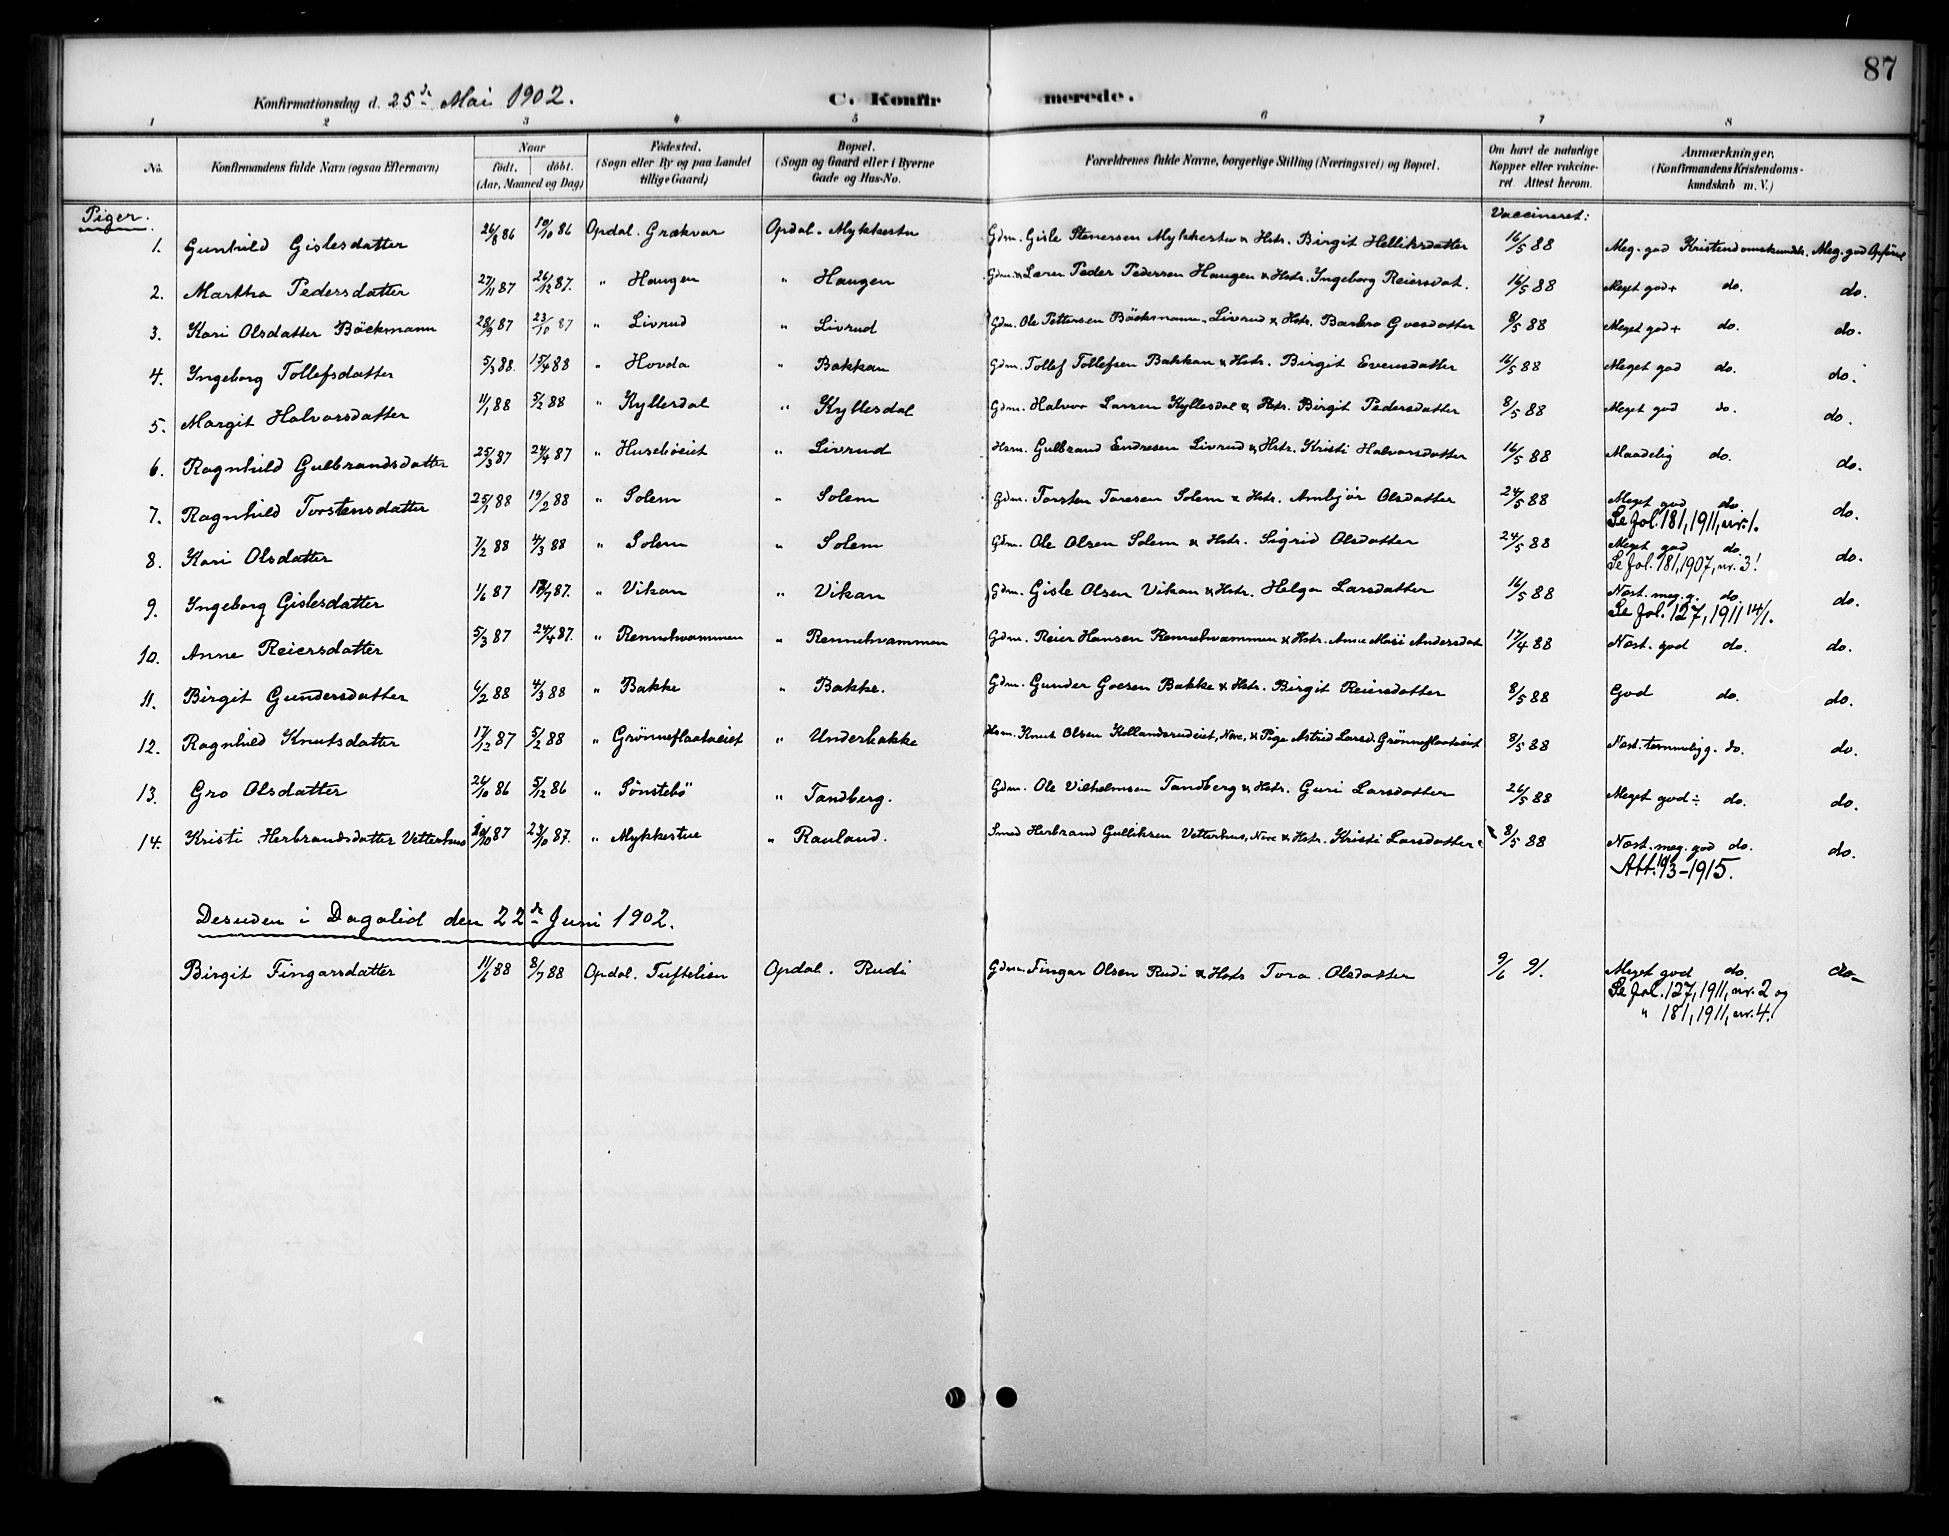 87
Konfirmationsdag d. 25de Mai 1902. C. Konfirmerede.
1 2 3 4 5 6 7 8
No. Konfirmandens fulde Navn (ogsaa Efternavn) Naar født. døbt. (Aar, Maaned og Dag) Fødested. (Sogn eller By og paa Landet tillige Gaard) Bopæl. (Sogn og Gaard eller i Byerne Gade og Hus-No. Forældrenes fulde Navne, borgerlige Stilling (Næringsvei) og Bopæl. Om havt de naturlige Kopper eller vakcineret. Attest herom. Anmærkninger. (Konfirmandens Kristendomskundskab m. V.)
Piger. Vaccineret:
1. Gunhild Gislesdatter 26/8 86 10/10 86 Opdal. Grækvar Opdal. Mykkestu Gdm. Gisle Stenersen Mykkestu & Hstr. Birgit Helliksdatter 16/5 88 Meg. god Kristendomskundsk. Meg. god Opførsel
2. Martha Pedersdatter 27/11 87 26/12 87. " Haugen " Haugen Gdm. & Lærer Peder Pedersen Haugen & Hstr. Ingeborg Reiersdat. 16/5 88 Meget god+ do. do.
3. Kari Olsdatter Bäckmann 28/9 87 23/10 87 " Livrud " Livrud Gdm. Ole Pettersen Bäckmann, Livrud & Hstr. Barbro Goesdatter 8/5 88 Meget god+ do. do.
4. Ingeborg Tollefsdatter 5/3 88. 15/4 88 " Hovda " Bakkan Gdm. Tollef Tollefsen Bakkan & Hstr. Birgit Evensdatter 16/5 88 Meget god do. do.
5. Margit Halvorsdatter 11/1 88 5/2 88 " Kyllesdal " Kyllesdal Gdm. Halvor Larsen Kyllesdal & Hstr. Birgit Pedersdatter 8/5 88 Meget god do. do.
6. Ragnhild Gulbrandsdatter 25/3 87 24/4 87 " Husebøeiet " Livrud Hsm. Gulbrand Endresen Livrud & Hstr. Kristi Halvorsdatter 16/5 88 Maadelig do. do.
7. Ragnhild Torstensdatter 25/1 88 19/2 88 " Solem " Solem Gdm. Torsten Toresen Solem & Hstr. Ambjør Olsdatter 24/5 88 Meget god do. do.
Se fol. 181, 1911, nr. 1.
8. Kari Olsdatter 7/2 88 4/3 88 " Solem " Solem Gdm. Ole Olsen Solem & Hstr. Sigrid Olsdatter 24/5 88 Meget god do. do.
Se fol. 181, 1907, nr. 3!
9. Ingeborg Gislesdatter 1/6 87 /7 87. " Vikan " Vikan Gdm. Gisle Olsen Vikan & Hstr. Helga Larsdatter 16/5 88 Næst. meg. g. do. do.
Se fol. 127, 1911 14/1.
10. Anne Reiersdatter 5/3 87 24/4 87. " Rennehvammen " Rennehvammen Gdm. Reier Hansen Rennehvammen & Hstr. Anne Mari Andersdat 17/4 88 Næst. god do. do.
11. Birgit Gundersdatter 6/2 88 4/3 88 " Bakke " Bakke. Gdm. Gunder Goesen Bakke & Hstr. Birgit Reiersdatter 8/5 88 God do. do.
12. Ragnhild Knutsdatter 17/12 87 5/2 88 " Grønneflaataeiet " Underbakke Hsm. Knut Olsen Kollandsrudeiet, Nore, & Pige Astrid Larsd. Grønneflaataeiet 8/5 88 Næst. temmelig g. do. do.
13. Gro Olsdatter 26/10 86 5/12 86 " Sønstebø " Tandberg. Gdm. Ole Vilhelmsen Tandberg & Hstr. Guri Larsdatter 26/5 88 Meget god÷ do. do.
14. Kristi Herbrandsdatter Vetterhus /10 87 23/10 87. " Mykkestue " Rauland. Smed Herbrand Gulliksen Vetterhus, Nore & Hstr. Kristi Larsdatter 8/5 88 Næst. meg. god do. do.
Att. 19/3-1915.
Desuden i Dagalid den 22de Juni 1902.
Birgit Fingarsdatter 11/6 88 8/7 88 Opdal. Tuftelien Opdal. Rudi Gdm. Fingar Olsen Rudi & Hstr Tora Olsdatter 9/6 91. Meget god do. do
Se fol. 127, 1911, nr. 2 og
" 181, 1911, nr. 4!